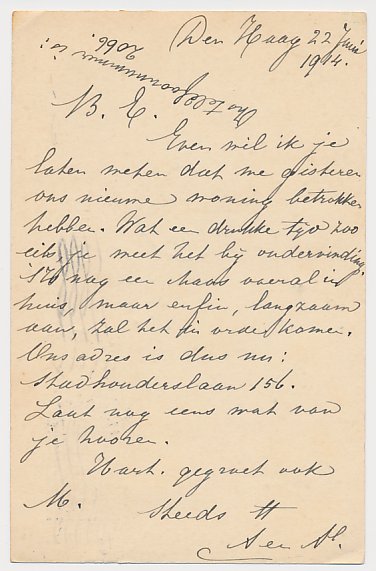 Den Haag 22 Juni
1914.
Ons telefoonnummer is: 2066
B. E.
Even wil ik je
laten weten dat we gisteren
ons nieuwe woning betrokken
hebben. Wat een drukke tijd zoo
iets, je weet het bij ondervinding.
't Is nog een chaos vooral in
huis, maar enfin, langzaam
aan, zal het in orde komen.
Ons adres is dus nu:
Stadhouderslaan 156.
Laat nog eens wat van
je hooren.
Hart. gegroet ook
M. Steeds tt
A en